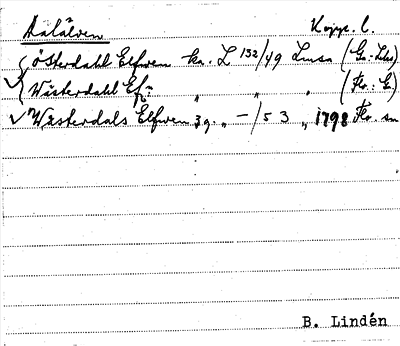 Dalälven Kopp. l.
Österdahl Elfven ka. L 132/49 Lmsa (G. Lbs)
Wästerdahl Elf: " " " (Flo: G)
Wästerdals Elfven 39. " –/53 " 1798 Flo. sn
B. Lindén